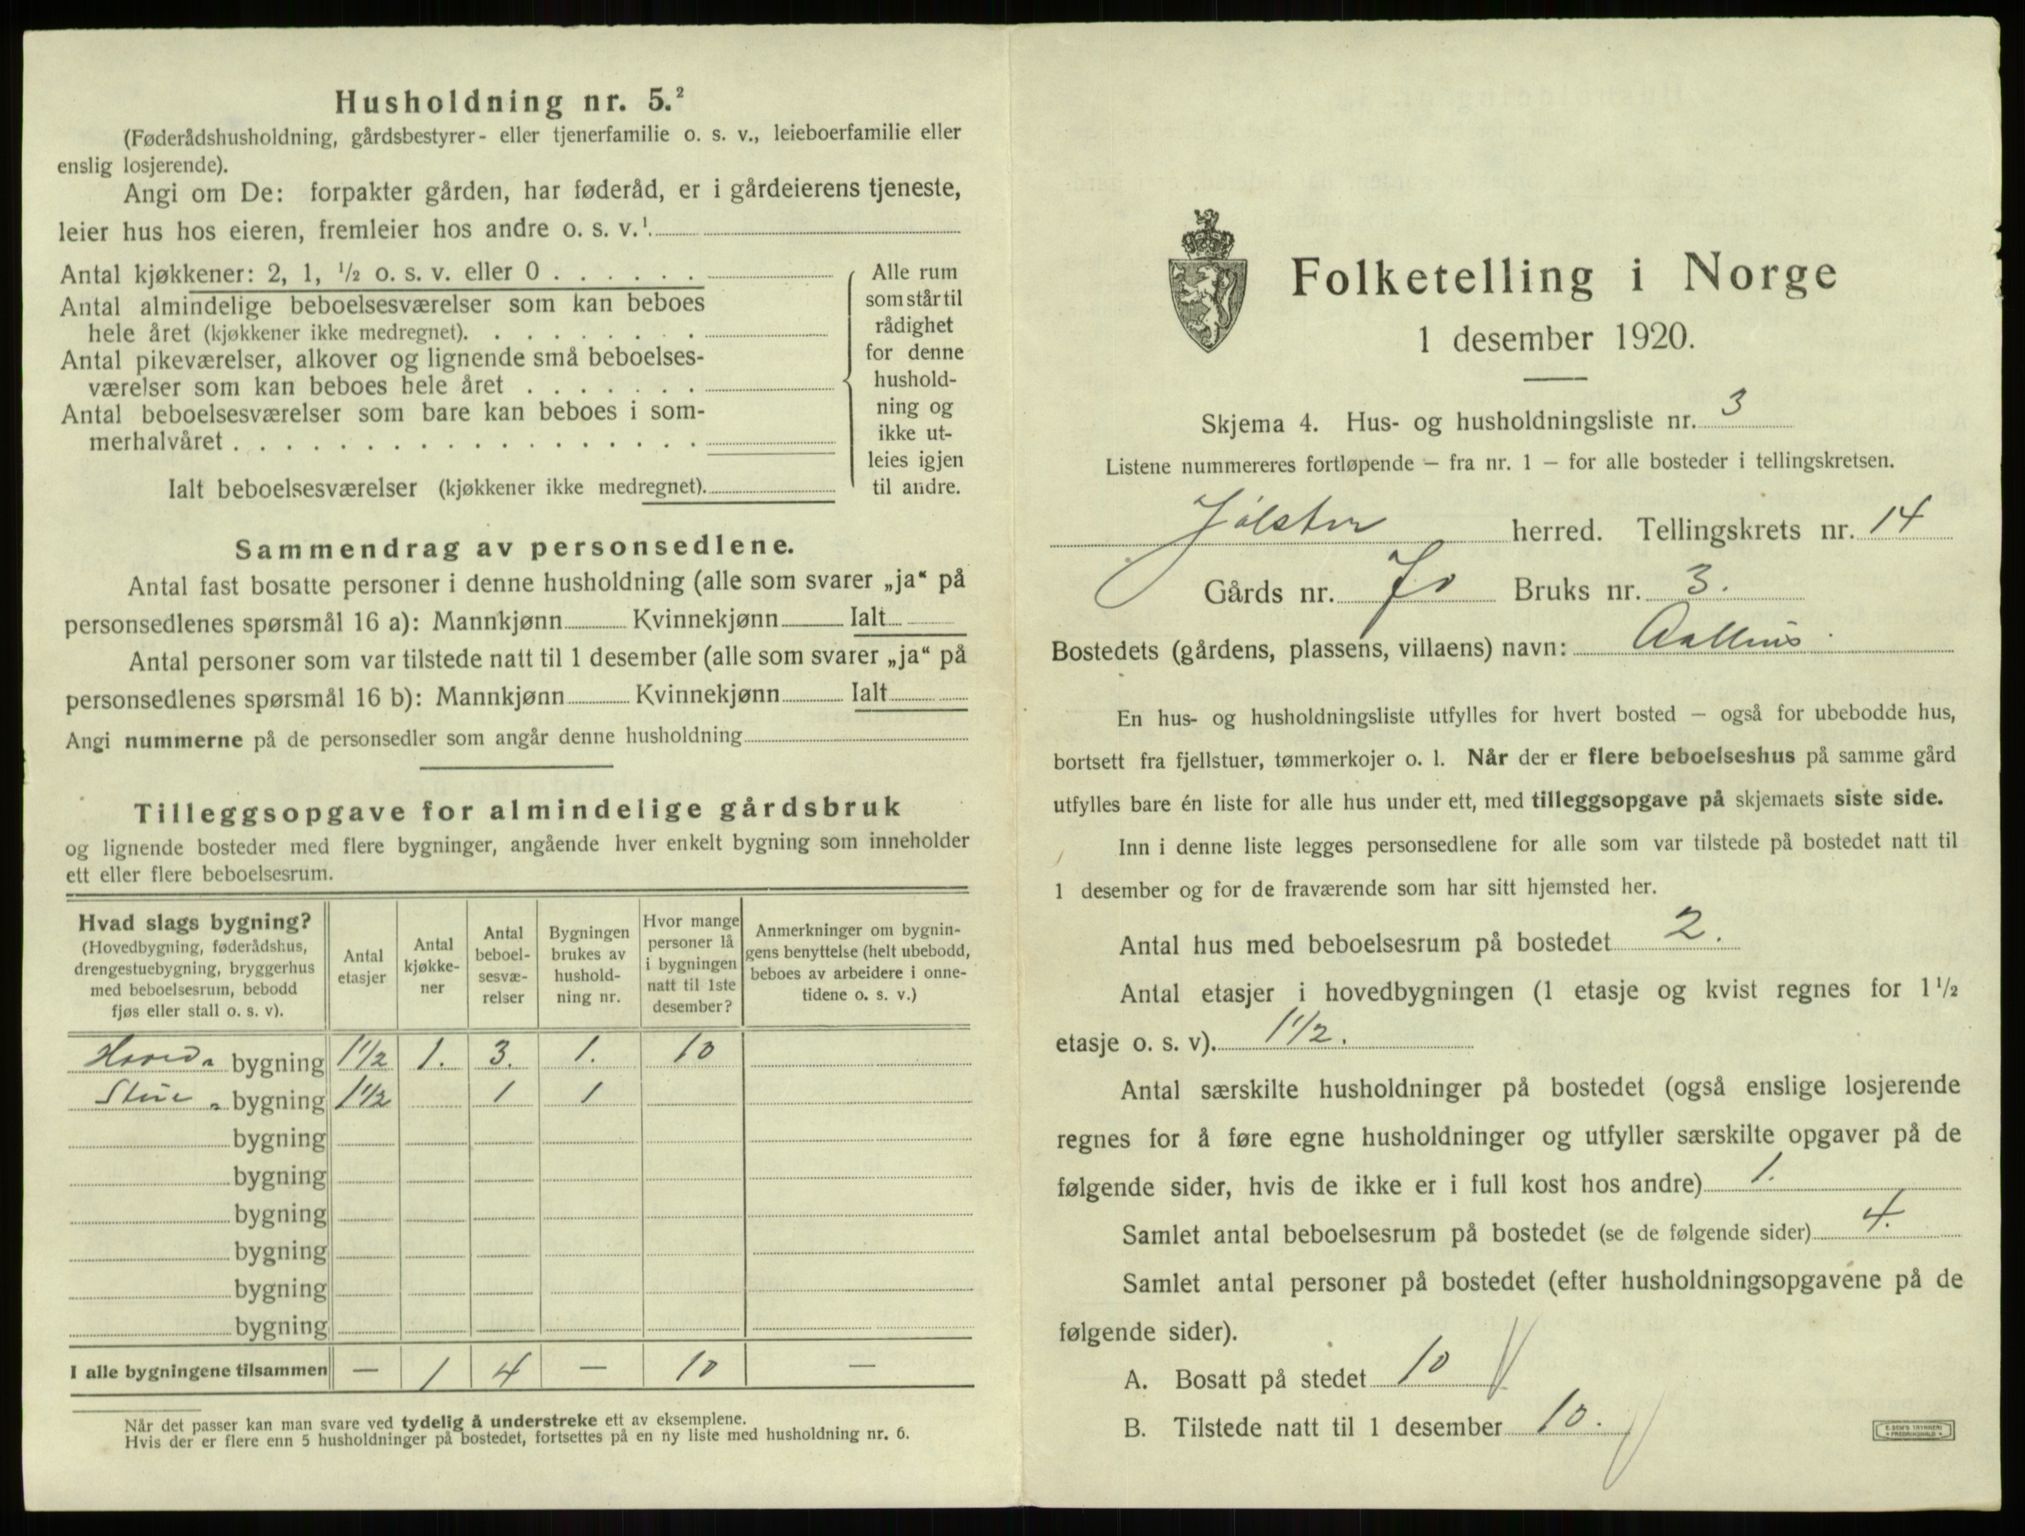 Husholdning nr. 5.²
(Føderådshusholdning, gårdsbestyrer- eller tjenerfamilie o. s. v., leieboerfamilie eller
enslig losjerende).
Angi om De: forpakter gården, har føderåd, er i gårdeierens tjeneste,
leier hus hos eieren, fremleier hos andre o. s. v.¹
Antal kjøkkener: 2, 1, ½ o. s. v. eller 0
Antal almindelige beboelsesværelser som kan beboes
hele året (kjøkkener ikke medregnet).
Antal pikeværelser, alkover og lignende små beboelses-
værelser som kan beboes hele året
Antal beboelsesværelser som bare kan beboes i som-
merhalvåret
Ialt beboelsesværelser (kjøkkener ikke medregnet).
Alle rum
som står til
rådighet
for denne
hushold-
ning og
ikke ut-
leies igjen
til andre.
Sammendrag av personsedlene.
Antal fast bosatte personer i denne husholdning (alle som svarer „ja“ på
personsedlenes spørsmål 16 a): Mannkjønn Kvinnekjønn Ialt
Antal personer som var tilstede natt til 1 desember (alle som svarer „ja“ på
personsedlenes spørsmål 16 b): Mannkjønn Kvinnekjønn Ialt
Angi nummerne på de personsedler som angår denne husholdning
Tilleggsopgave for almindelige gårdsbruk
og lignende bosteder med flere bygninger, angående hver enkelt bygning som inneholder
ett eller flere beboelsesrum.
Hvad slags bygning?
(Hovedbygning, føderådshus,
drengestuebygning, bryggerhus
med beboelsesrum, bebodd
fjøs eller stall o. s. v).
Antal
etasjer
Antal
kjøkke-
ner
Antal
beboel-
sesvæ-
relser
Bygningen
brukes av
hushold-
ning nr.
Hvor mange
personer lå
i bygningen
natt til 1ste
desember?
Anmerkninger om bygnin-
gens benyttelse (helt ubebodd,
beboes av arbeidere i onne-
tidene o. s. v.)
Hoved- bygning 1½ 1. 3. 1. 10
Stue - bygning 1½ 1 1
bygning
bygning
bygning
bygning
bygning
bygning
I alle bygningene tilsammen — 1 4 — 10 —
Når det passer kan man svare ved tydelig å understreke ett av eksemplene.
Hvis der er flere enn 5 husholdninger på bostedet, fortsettes på en ny liste med husholdning nr. 6.
Folketelling i Norge
1 desember 1920.
Skjema 4. Hus- og husholdningsliste nr. 3
Listene nummereres fortløpende — fra nr. 1 — for alle bosteder i tellingskretsen.
Jølster herred. Tellingskrets nr. 14
Gårds nr. 70 Bruks nr. 3.
Bostedets (gårdens, plassens, villaens) navn:
En hus- og husholdningsliste utfylles for hvert bosted — også for ubebodde hus,
bortsett fra fjellstuer, tømmerkojer o. l. Når der er flere beboelseshus på samme gård
utfylles bare én liste for alle hus under ett, med tilleggsopgave på skjemaets siste side.
Inn i denne liste legges personsedlene for alle som var tilstede på bostedet natt til
1 desember og for de fraværende som har sitt hjemsted her.
Antal hus med beboelsesrum på bostedet 2.
Antal etasjer i hovedbygningen (1 etasje og kvist regnes for 1½
etasje o. s. v). 1½.
Antal særskilte husholdninger på bostedet (også enslige losjerende
regnes for å føre egne husholdninger og utfyller særskilte opgaver på de
følgende sider, hvis de ikke er i full kost hos andre) 1.
Samlet antal beboelsesrum på bostedet (se de følgende sider) 4.
Samlet antal personer på bostedet (efter husholdningsopgavene på de
følgende sider).
A. Bosatt på stedet 10
B. Tilstede natt til 1 desember 10.